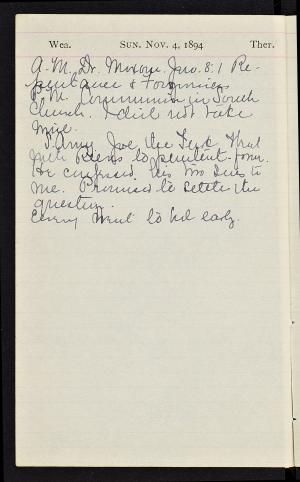 Wea. SUN. NOV. 4, 1894 Ther.
A.M. Dr. Moxom. Jno. 8:1 Re-
pentance & Forgiveness
P.M. Communion in South
Church. I did not take
wine.
Army. Joe, the Turk that
to penitent form.
He confessed his two sins to
me. Promised to settle the
question.
went to bed early.